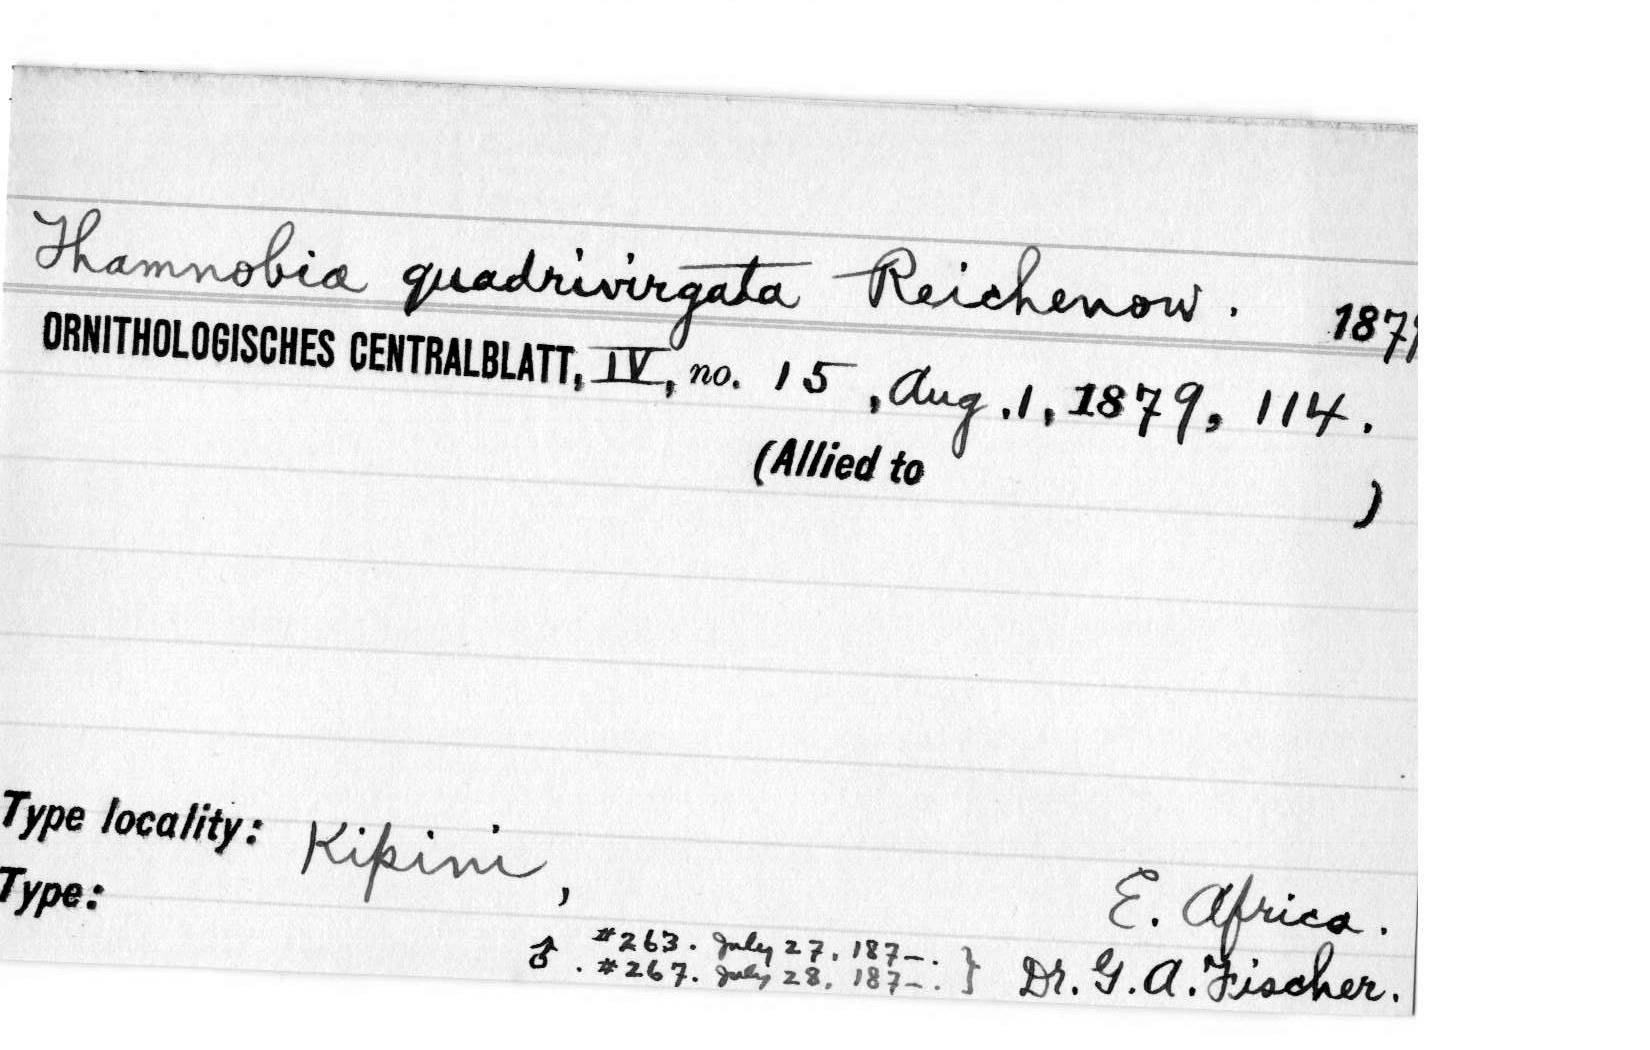 Thamnobia quadrivirgata Reichenow. 1879
ORNITHOLOGISCHES CENTRALBLATT, IV, no. 15, Aug. 1, 1879, 114.
(Allied to )
Type locality: Kipini, E. Africa.
Type:
♂ . #263. July 27, 187–. }
#267. July 28, 187–. } Dr. G. A. Fischer.